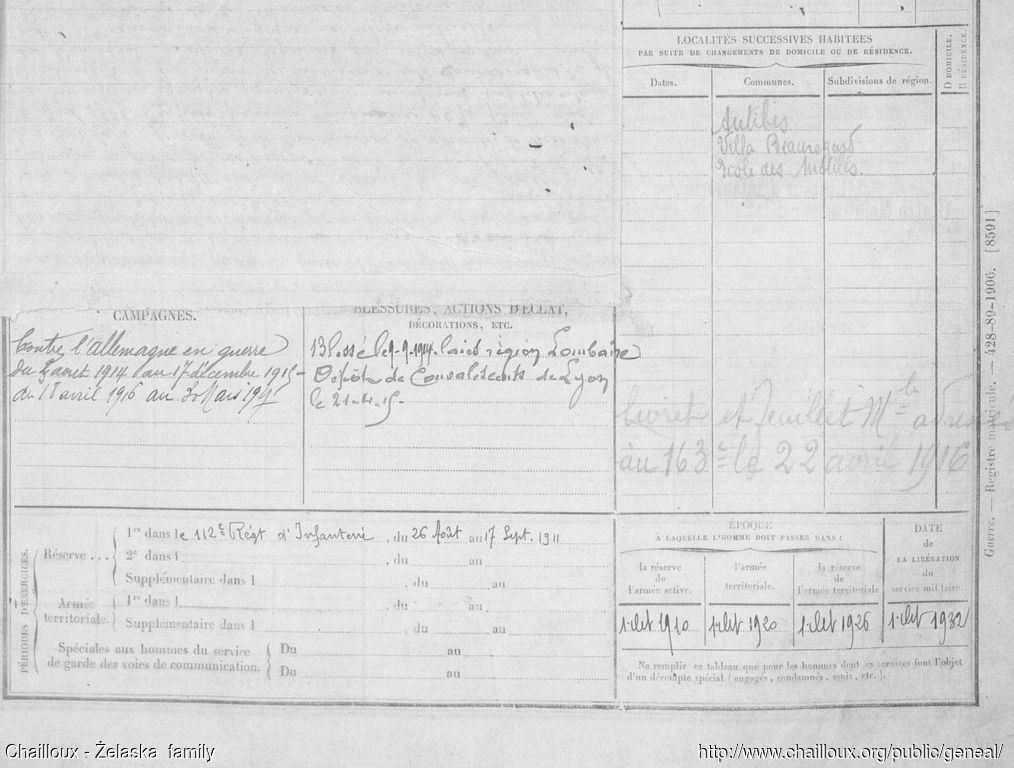 LOCALITÉS SUCCESSIVES HABITÉES
PAR SUITE DE CHANGEMENTS DE DOMICILE OU DE RÉSIDENCE.
D DOMICILE,
R RÉSIDENCE.
Dates.
Communes.
Subdivisions de région.
Antibes
Villa Beauregard
Ecole des Mutilés.
CAMPAGNES.
Contre l'Allemagne en guerre
du 5 aout 1914 au 17 décembre 1915
du 18 avril 1916 au 3 Mars 1917
BLESSURES, ACTIONS D'ÉCLAT,
DÉCORATIONS, ETC.
Blessé le 9-9-1914. région Lombaire
Dépôt de Convalescents de Lyon
le 21-4-15
livret et feuillet Mle adressés
au 163e le 22 avril 1916
Guerre. — Registre matricule. — 428-89-1906. [8591]
PÉRIODES D'EXERCICES.
Réserve ...
1re dans le 112e Régt d'Infanterie, du 26 Août au 17 Sept. 1911
2e dans l , du au
Supplémentaire dans l , du au
Armée
territoriale.
1re dans l , du au
Supplémentaire dans l , du au
Spéciales aux hommes du service
de garde des voies de communication.
Du au
Du au
ÉPOQUE
À LAQUELLE L'HOMME DOIT PASSER DANS :
la réserve
de
l'armée active.
l'armée
territoriale.
la réserve
de
l'armée territoriale
DATE
de
LA LIBÉRATION
du
service militaire.
1 Oct 1910
1 Oct 1920
1 Oct 1926
1 Oct 1932
Ne remplir ce tableau que pour les hommes dont les services font l'objet
d'un décompte spécial (engagés, condamnés, omis, etc.).
Chailloux - Żelaska family
http://www.chailloux.org/public/geneal/